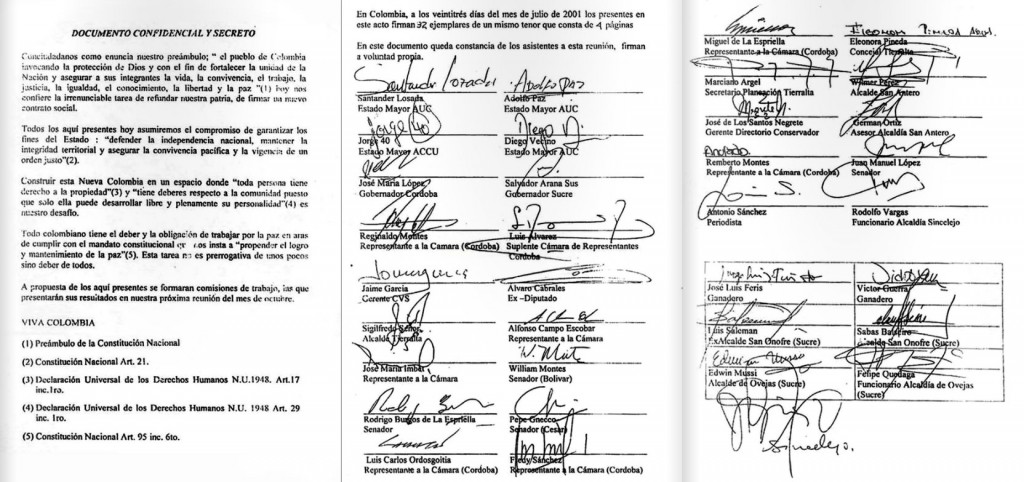 DOCUMENTO CONFIDENCIAL Y SECRETO
Conciudadanos como enuncia nuestro preámbulo; " el pueblo de Colombia
invocando la protección de Dios y con el fin de fortalecer la unidad de la
Nación y asegurar a sus integrantes la vida, la convivencia, el trabajo, la
justicia, la igualdad, el conocimiento, la libertad y la paz "(1) hoy nos
confiere la irrenunciable tarea de refundar nuestra patria, de firmar un nuevo
contrato social.
Todos los aquí presentes hoy asumiremos el compromiso de garantizar los
fines del Estado : "defender la independencia nacional, mantener la
integridad territorial y asegurar la convivencia pacífica y la vigencia de un
orden justo"(2).
Construir esta Nueva Colombia en un espacio donde "toda persona tiene
derecho a la propiedad"(3) y "tiene deberes respecto a la comunidad puesto
que solo ella puede desarrollar libre y plenamente su personalidad"(4) es
nuestro desafío.
Todo colombiano tiene el deber y la obligación de trabajar por la paz en aras
de cumplir con el mandato constitucional que nos insta a "propender el logro
y mantenimiento de la paz"(5). Esta tarea no es prerrogativa de unos pocos
sino deber de todos.
A propuesta de los aquí presentes se formaran comisiones de trabajo, las que
presentarán sus resultados en nuestra próxima reunión del mes de octubre.
VIVA COLOMBIA
(1) Preámbulo de la Constitución Nacional
(2) Constitución Nacional Art. 21.
(3) Declaración Universal de los Derechos Humanos N.U.1948. Art.17
inc.1ro.
(4) Declaración Universal de los Derechos Humanos N.U. 1948 Art. 29
inc. 1ro.
(5) Constitución Nacional Art. 95 inc. 6to.
En Colombia, a los veintitrés días del mes de julio de 2001 los presentes en
este acto firman 32 ejemplares de un mismo tenor que consta de 4 páginas
En este documento queda constancia de los asistentes a esta reunión, firman
a voluntad propia.
Santander Lozada Adolfo PAZ
Santander Losada Adolfo Paz
Estado Mayor AUC Estado Mayor AUC
Jorge 40 Diego V.
Jorge 40 Diego Vecino
Estado Mayor ACCU Estado Mayor AUC
José María López Salvador Arana Sus
Gobernador Cordoba Gobernador Sucre
Reginaldo Montes Luis Alvarez
Representante a la Camara (Cordoba) Suplente Cámara de Representantes
Cordoba
Jaime García Alvaro Cabrales
Gerente CVS Ex -Diputado
Sigilfredo Senior Alfonso Campo Escobar
Alcalde Tierralta Representante a la Cámara
José María Imbet William Montes
Representante a la Cámara Senador (Bolivar)
Rodrigo Burgos de La Espriella Pepe Gnecco
Senador Senador (Cesar)
Luis Carlos Ordosgoitia Fredy Sánchez
Representante a la Cámara (Cordoba) Representante a la Cámara (Cordoba)
Eleonora Pineda
Miguel de La Espriella Eleonora Pineda
Representante a la Cámara (Cordoba) Concejo Tierralta
Marciano Argel Wilmer Pérez
Secretario Planeación Tierralta Alcalde San Antero
José de Los Santos Negrete German Ortiz
Gerente Directorio Conservador Asesor Alcaldía San Antero
Remberto Montes Juan Manuel López
Representante a la Cámara (Cordoba) Senador
Antonio Sánchez Rodolfo Vargas
Periodista Funcionario Alcaldía Sincelejo
José Luis Feris Victor Guerra
Ganadero Ganadero
Luis Saleman Sabas Balseiro
ExAlcalde San Onofre (Sucre) Alcalde San Onofre (Sucre)
Edwin Mussi Felipe Quiroga
Alcalde de Ovejas (Sucre) Funcionario Alcaldía de Ovejas
(Sucre)
Sincelejo.